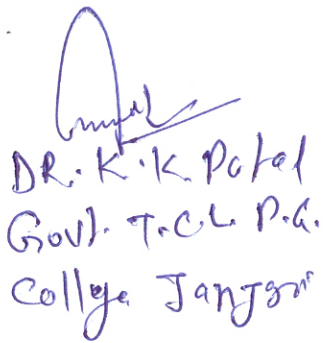 DR. K. K. Patel
Govt. T.C.L. P.G.
College Janjgir